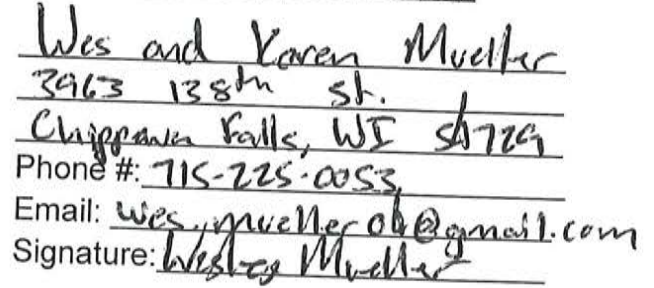 Wes and Karen Mueller
3963 138th St.
Chippewa Falls, WI 54729
Phone #: 715-225-0053
Email: wes.mueller06@gmail.com
Signature: Wesley Mueller